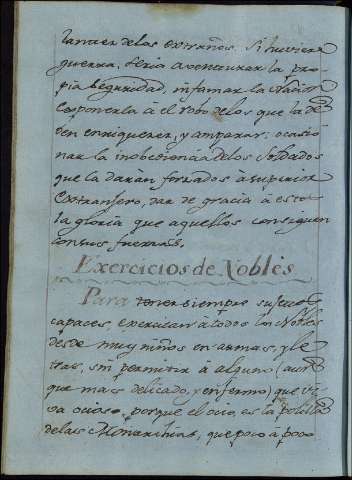 tanaer delos extraños. Si huviera
guerra, seria aventurar la pro-
pia seguridad, infamar la Nacion
exponerla à el robo delos que la de-
ven enriquezer, y amparar: ocasio
nar la inobediencia delos Soldados
que la daràn forzados à superior
Extrangero, dar de gracia à este
la gloria que aquellos consiguen
con sus fuerzas.
Exercicios de Nobles
Para tener siempre sugetos
capaces, exercitan à todos los Nobles
desde muy niños en armas, y le-
tras, sin permitir à alguno (aun
que mas delicado, y enfermo) que vi-
va ocioso, porque el ocio, es la polilla
delas Monarchias, que poco à poco